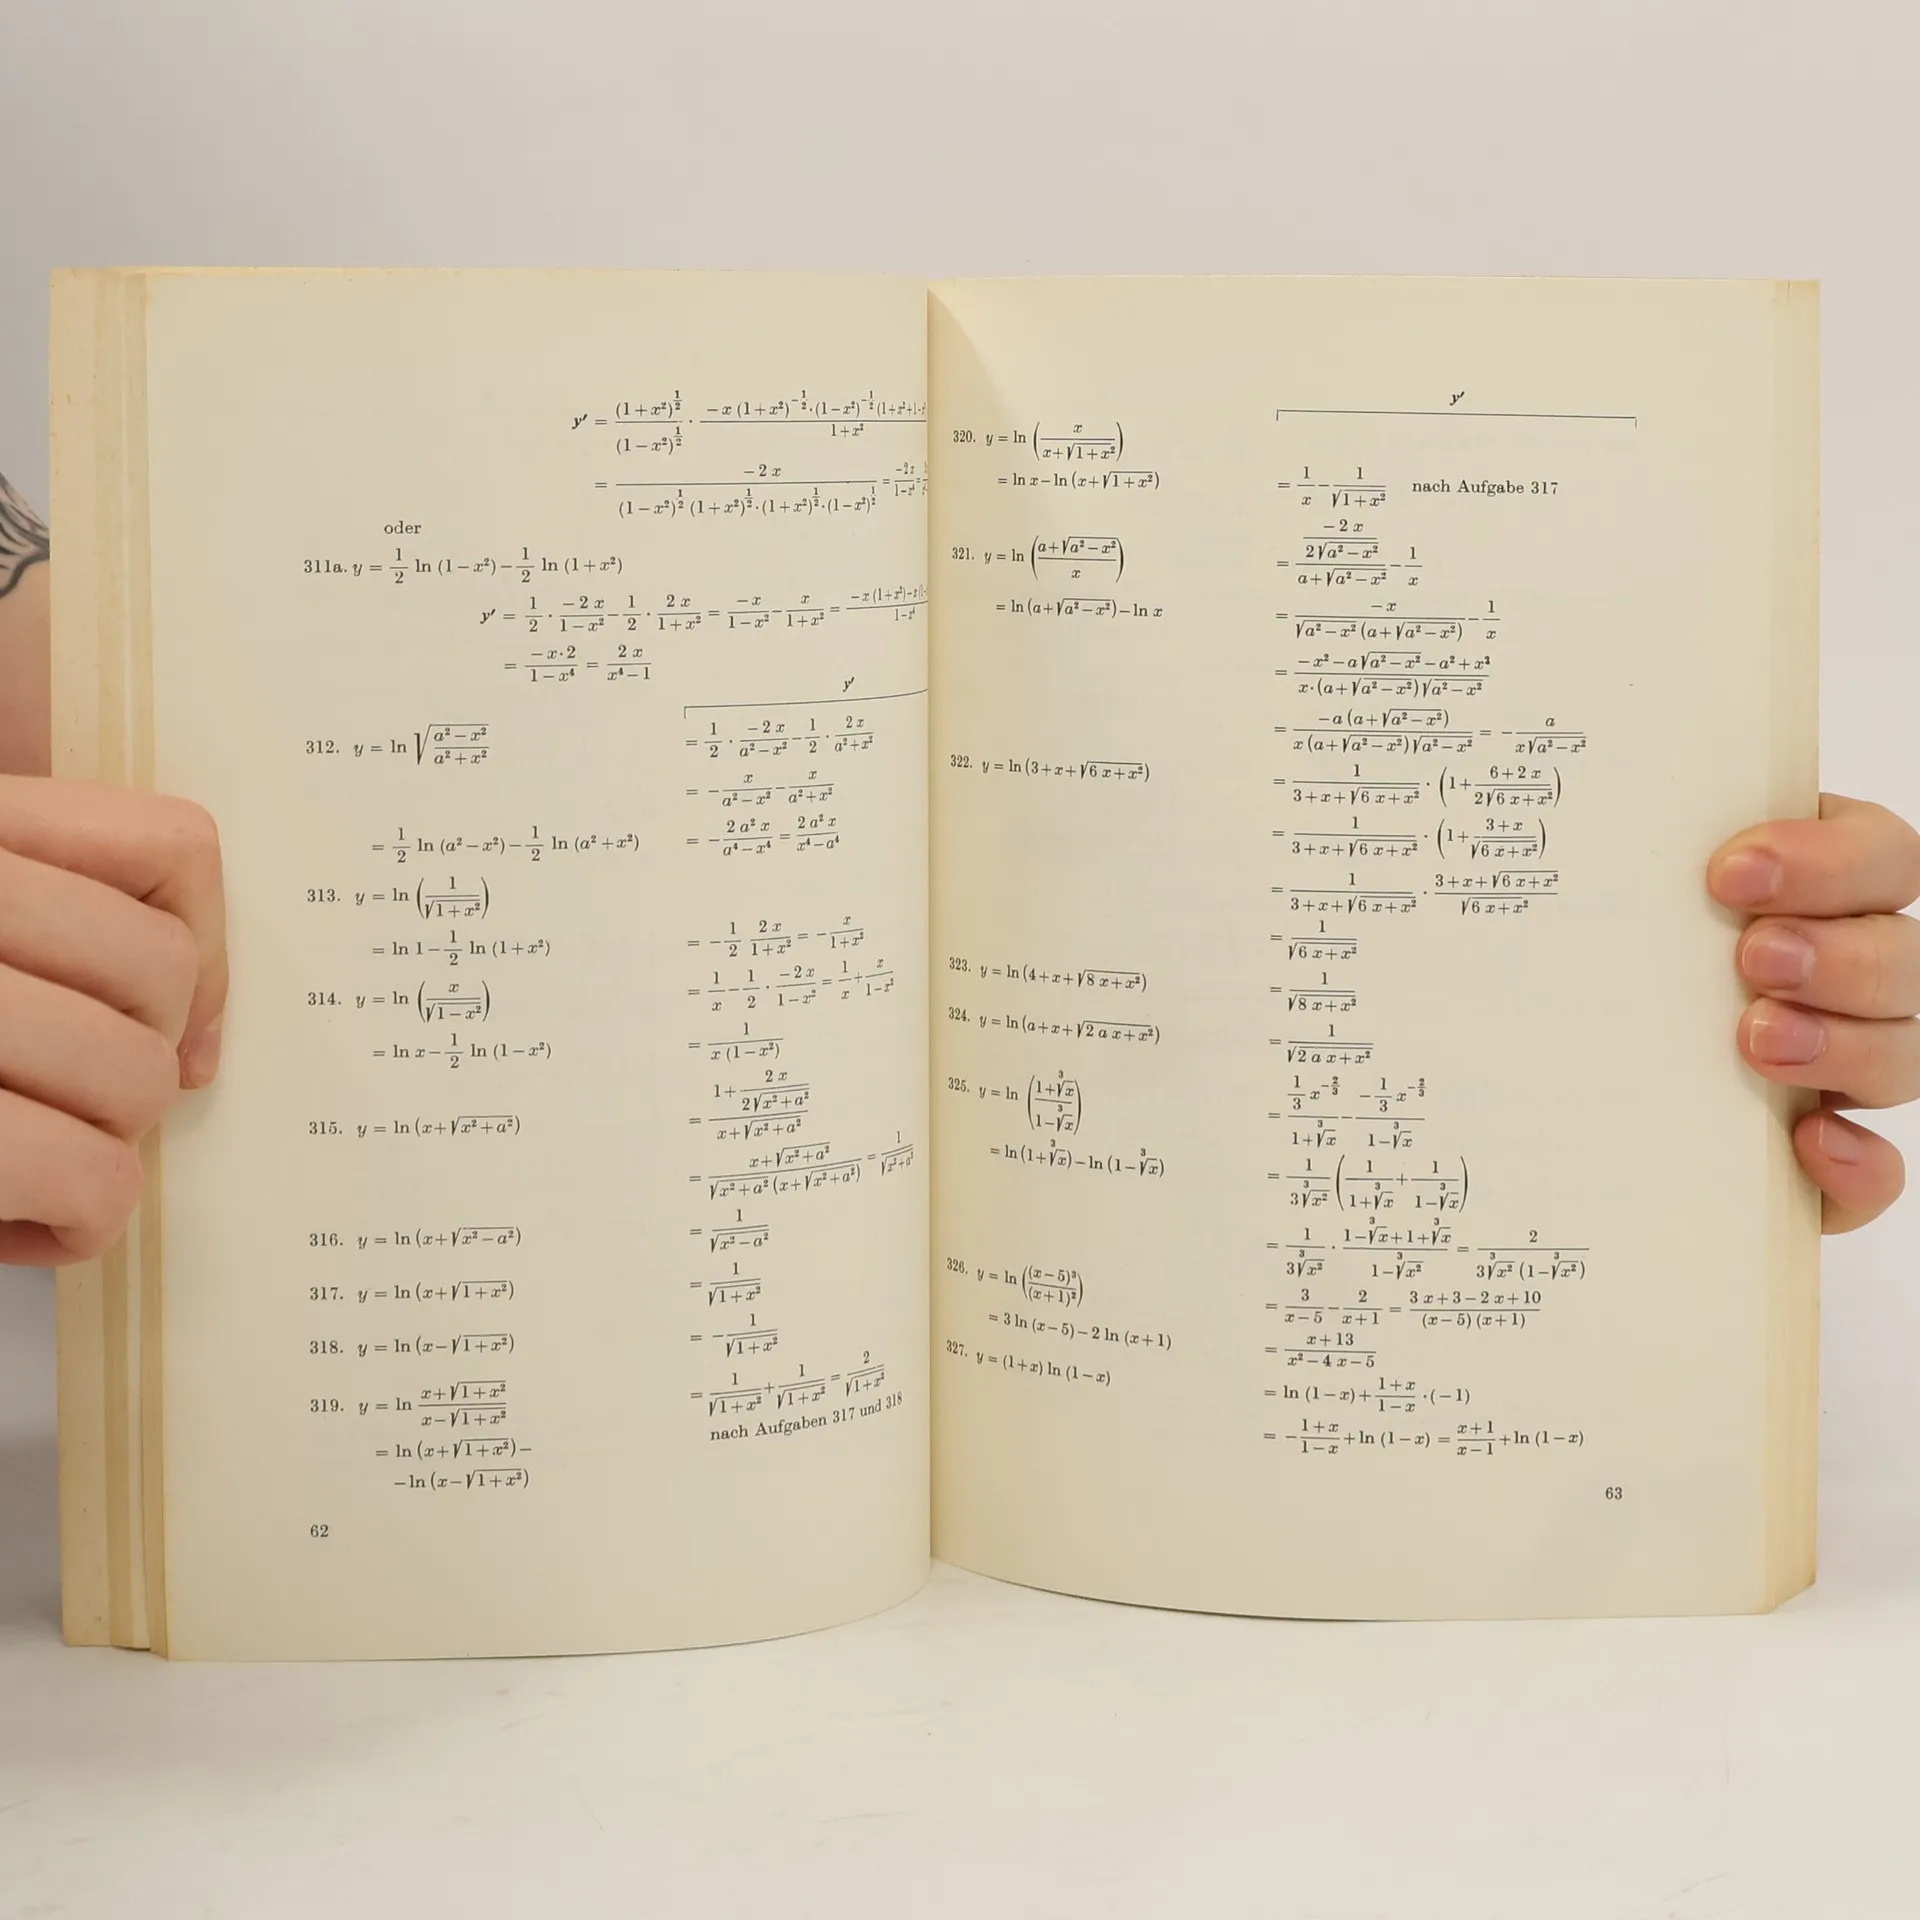 y′ = (1+x²)^{1/2} / (1−x²)^{1/2} · −x (1+x²)^{−1/2}·(1−x²)^{−1/2} (1+x²+1− / 1+x²
= −2 x / (1−x²)^{1/2} (1+x²)^{1/2}·(1+x²)^{1/2}·(1−x²)^{1/2} = −2x / 1−x⁴ =
oder
311a. y = 1/2 ln (1−x²) − 1/2 ln (1+x²)
y′ = 1/2 · −2 x / 1−x² − 1/2 · 2 x / 1+x² = −x / 1−x² − x / 1+x² = −x (1+x²)−x / 1−x⁴
= −x·2 / 1−x⁴ = 2 x / x⁴−1
y′
312. y = ln √(a²−x² / a²+x²) = 1/2 · −2 x / a²−x² − 1/2 · 2 x / a²+x²
= − x / a²−x² − x / a²+x²
= 1/2 ln (a²−x²) − 1/2 ln (a²+x²) = − 2 a² x / a⁴−x⁴ = 2 a² x / x⁴−a⁴
313. y = ln (1 / √(1+x²))
= ln 1 − 1/2 ln (1+x²) = − 1/2 2 x / 1+x² = − x / 1+x²
314. y = ln (x / √(1−x²)) = 1/x − 1/2 · −2 x / 1−x² = 1/x + x / 1−x²
= ln x − 1/2 ln (1−x²) = 1 / x (1−x²)
315. y = ln (x+√(x²+a²)) = 1+ 2 x / 2√(x²+a²) / x+√(x²+a²)
= x+√(x²+a²) / √(x²+a²) (x+√(x²+a²)) = 1 / √(x²+a²)
316. y = ln (x+√(x²−a²)) = 1 / √(x²−a²)
317. y = ln (x+√(1+x²)) = 1 / √(1+x²)
318. y = ln (x−√(1+x²)) = − 1 / √(1+x²)
319. y = ln x+√(1+x²) / x−√(1+x²) = 1 / √(1+x²) + 1 / √(1+x²) = 2 / √(1+x²)
nach Aufgaben 317 und 318
= ln (x+√(1+x²)) −
−ln (x−√(1+x²))
62
y′
320. y = ln (x / x+√(1+x²))
= ln x−ln (x+√(1+x²)) = 1/x − 1 / √(1+x²) nach Aufgabe 317
321. y = ln (a+√(a²−x²) / x) = −2 x / 2√(a²−x²) / a+√(a²−x²) − 1/x
= ln (a+√(a²−x²)) − ln x = −x / √(a²−x²) (a+√(a²−x²)) − 1/x
= −x²−a√(a²−x²)−a²+x² / x·(a+√(a²−x²))√(a²−x²)
= −a (a+√(a²−x²)) / x (a+√(a²−x²))√(a²−x²) = − a / x√(a²−x²)
322. y = ln (3+x+√(6 x+x²)) = 1 / 3+x+√(6 x+x²) · (1+ 6+2 x / 2√(6 x+x²))
= 1 / 3+x+√(6 x+x²) · (1+ 3+x / √(6 x+x²))
= 1 / 3+x+√(6 x+x²) · 3+x+√(6 x+x²) / √(6 x+x²)
= 1 / √(6 x+x²)
323. y = ln (4+x+√(8 x+x²)) = 1 / √(8 x+x²)
324. y = ln (a+x+√(2 a x+x²)) = 1 / √(2 a x+x²)
325. y = ln (1+∛x / 1−∛x) = 1/3 x^{−2/3} / 1+∛x − −1/3 x^{−2/3} / 1−∛x
= ln (1+∛x) − ln (1−∛x) = 1 / 3∛x² (1 / 1+∛x + 1 / 1−∛x)
= 1 / 3∛x² · 1−∛x+1+∛x / 1−∛x² = 2 / 3∛x² (1−∛x²)
326. y = ln ((x−5)³ / (x+1)²) = 3 / x−5 − 2 / x+1 = 3 x+3−2 x+10 / (x−5) (x+1)
= 3 ln (x−5) − 2 ln (x+1) = x+13 / x²−4 x−5
327. y = (1+x) ln (1−x) = ln (1−x) + 1+x / 1−x ·(−1)
= − 1+x / 1−x + ln (1−x) = x+1 / x−1 + ln (1−x)
63